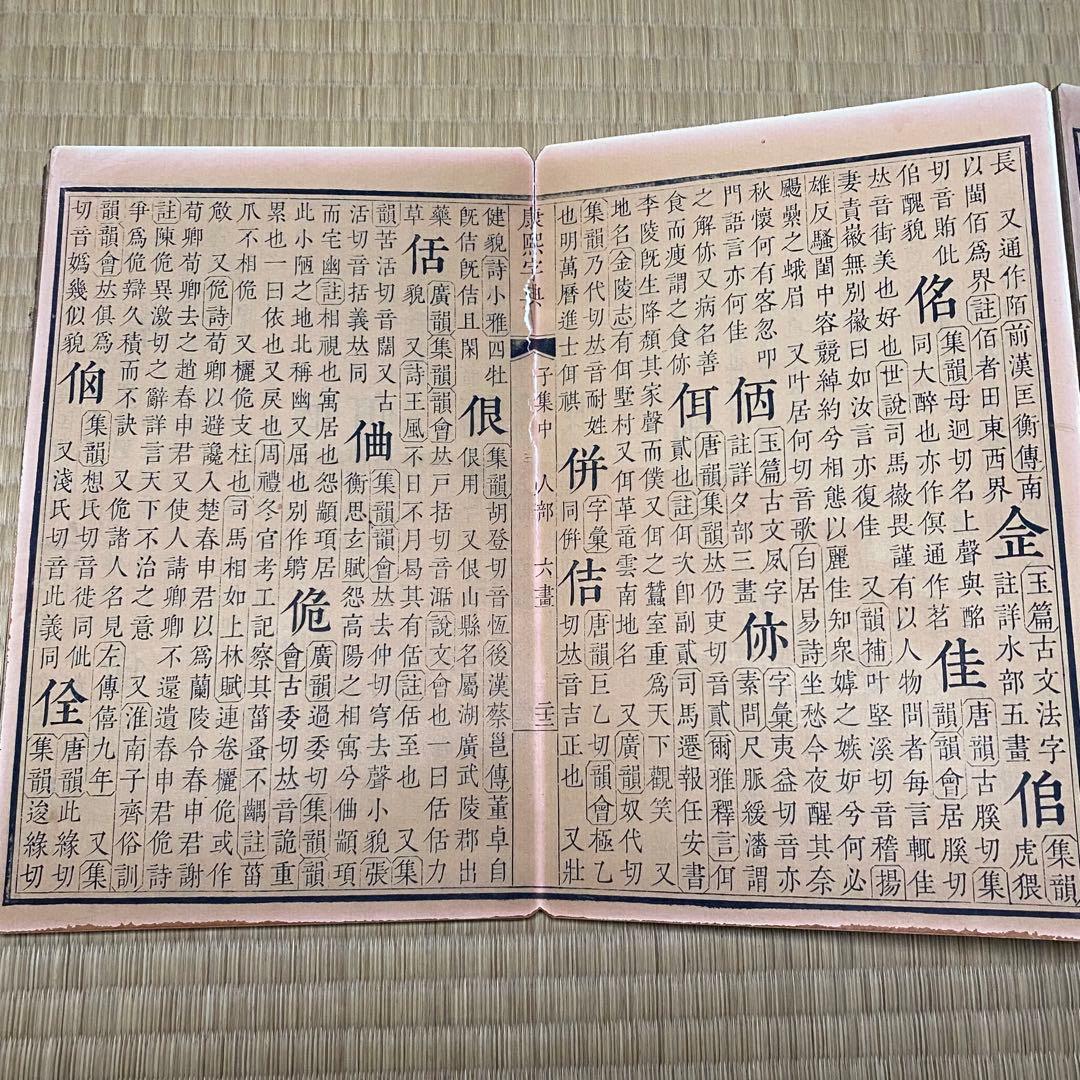 長 又通作陌前漢匡衡傳南
以閩佰爲界註佰者田東西界
佱 玉篇古文法字
註詳水部五畫
集韻虎猥
切音賄仳
醜貌
佲 集韻母迥切名上聲與酩
同大醉也亦作冥通作茗
佳 唐韻古膎切集
韻會居膎切
𠀤音街美也好也世說司馬徽畏謹有以人物問者每言輒佳
妻責徽無別徽曰如汝言亦復佳 又韻補叶堅溪切音稽揚
雄反騷閨中容競綽約兮相態以麗佳知衆嫭之嫉妒兮何必
颺纍之蛾眉 又叶居何切音歌白居易詩坐愁今夜醒其奈
秋懷何有客忽叩
門語言亦何佳
㑉 玉篇古文夙字
註詳夕部三畫
㑊 字彙夷益切音亦
素問尺脈緩濇謂
之解㑊又病名善
食而瘦謂之食㑊
佴 唐韻集韻𠀤仍吏切音貳爾雅釋言佴
貳也註佴次卽副貳司馬遷報任安書
李陵旣生降頹其家聲而僕又佴之蠶室重爲天下觀笑 又
地名金陵志有佴墅村又佴草竜雲南地名 又廣韻奴代切
集韻乃代切𠀤音耐姓
也明萬曆進士佴祺
倂 字彙
同併
佶 唐韻巨乙切韻會極乙
切𠀤音吉正也 又壯
康熙字典 子集中 人部 六畫 二三
健貌詩小雅四牡
旣佶旣佶且閑
佷 集韻胡登切音恆後漢蔡邕傳董卓自
佷用 又佷山縣名屬湖廣武陵郡出
藥
草
佸 廣韻集韻韻會𠀤戶括切音湉說文會也一曰佸佸力
貌 又詩王風不日不月曷其有佸註佸至也 又集
韻苦活切音闊又古
活切音括義𠀤同
㑋 集韻韻會𠀤去仲切穹去聲小貌張
衡思玄賦怨高陽之相寓兮㑋顓頊
而宅幽註相視也寓居也怨顓頊居
此小陋之地北稱幽又屈也別作躬
佹 廣韻過委切集韻韻
會古委切𠀤音詭重
累也一曰依也又戾也周禮冬官考工記察其菑蚤不齵註菑
爪不相佹 又欐佹支柱也司馬相如上林賦連卷欐佹或作
㩻 又佹詩荀卿以避讒入楚春申君以爲蘭陵令春申君謝
荀卿荀卿去之趙春申君又使人請卿卿不還遺春申君佹詩
註陳佹異激切之辭詳言天下不治之意 又淮南子齊俗訓
爭爲佹辯久積而不訣 又佹諸人名見左傳僖九年 又集
韻韻會𠀤俱爲
切音嬀幾似貌
集韻想氏切音徙同佌
又淺氏切音此義同
佺 唐韻此緣切
集韻逡緣切